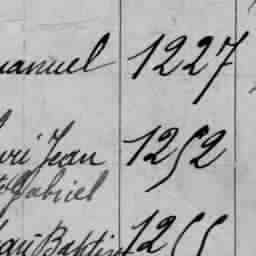 anuel 1227
ri Jean 1252
Gabriel
Baptis 1255